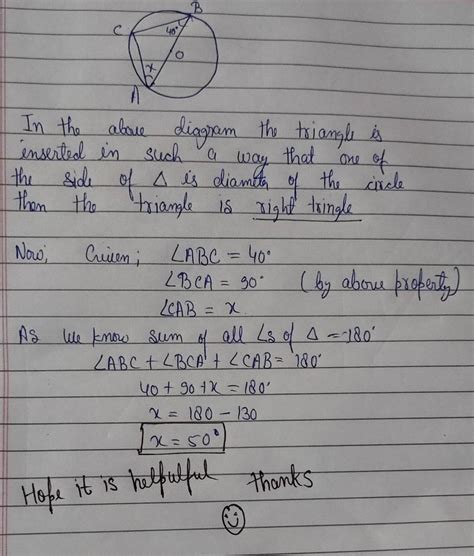 B
C
40°
O
x
A
In the above diagram the triangle is
inserted in such a way that one of
the side of Δ is diameter of the circle
then the triangle is right tringle
Now, Given; ∠ABC = 40°
∠BCA = 90° (by above property)
∠CAB = x.
As we know sum of all ∠s of Δ = 180°
∠ABC + ∠BCA + ∠CAB = 180°
40 + 90 + x = 180°
x = 180 - 130
x = 50°
Hope it is helpulful thanks